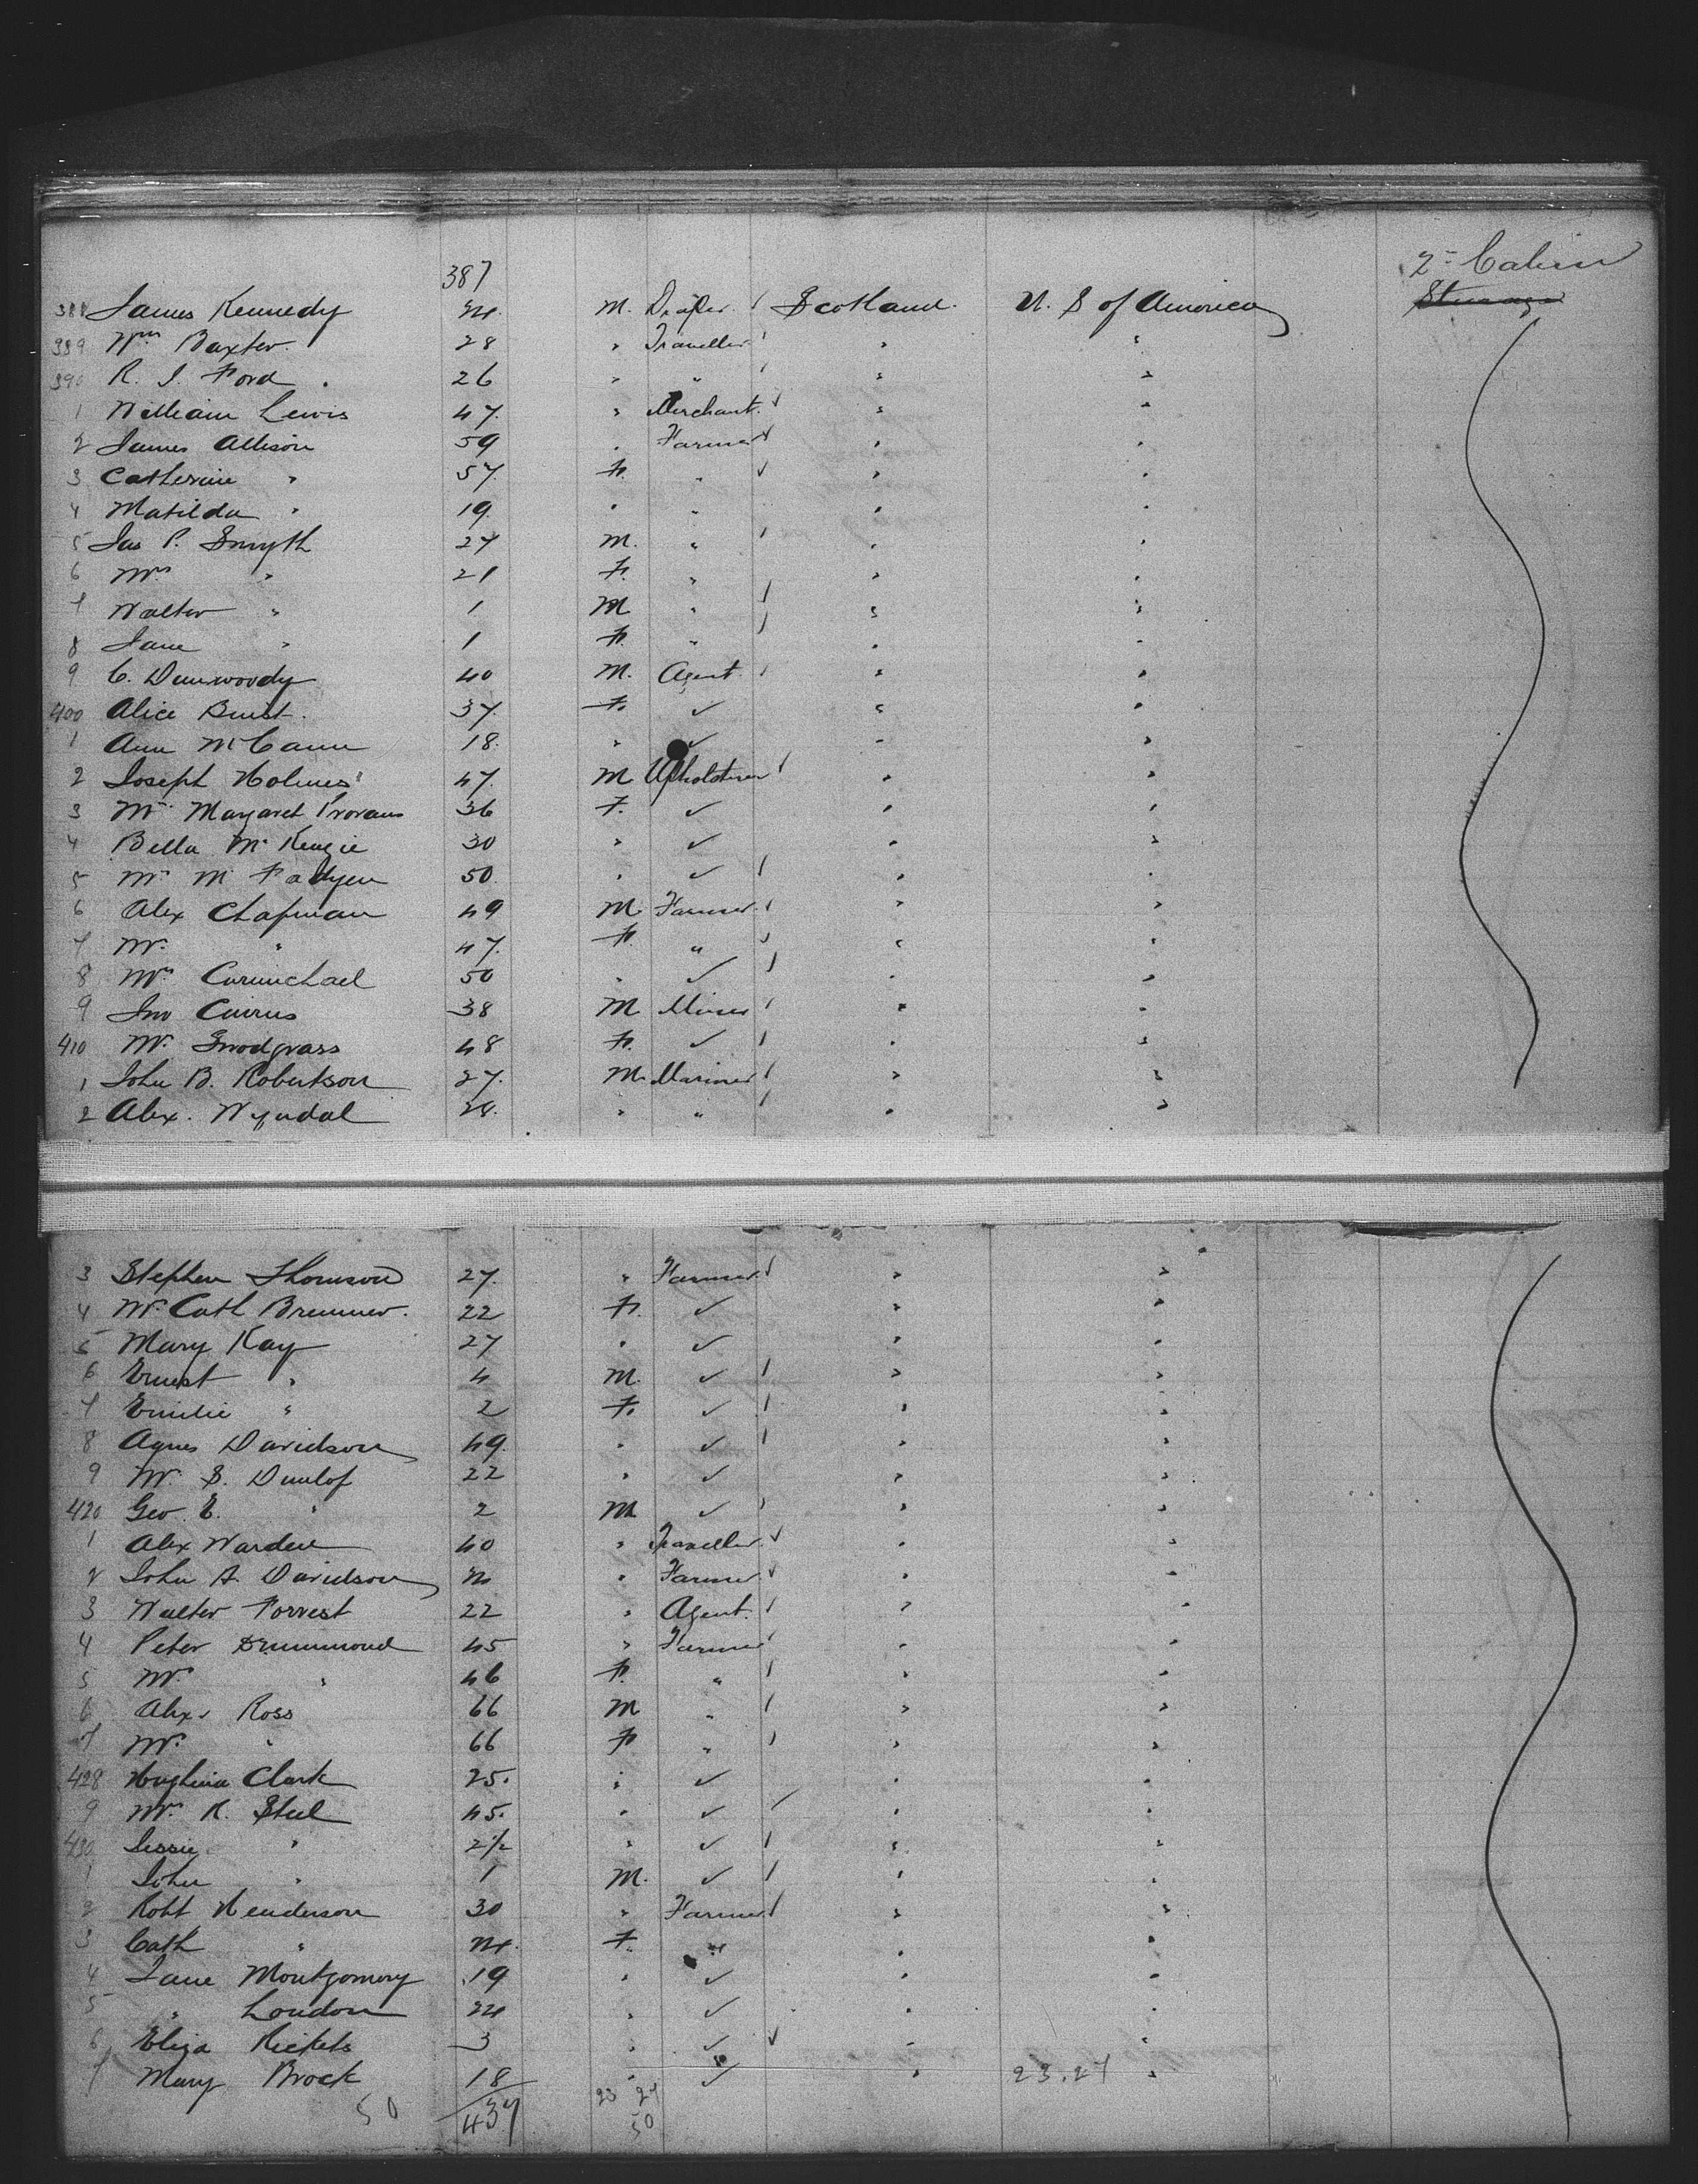 387
2= Cabin
388 James Kennedy 24. M. Draper Scotland. U. S of America Steerage
389 Wm Baxter. 28 " Traveller " "
390 R. J. Ford. 26 " " " "
1 William Lewis 47. " Merchant. " "
2 James Allison 59 " Farmer " "
3 Catherine " 57. F. " " "
4 Matilda " 19. " " " "
5 Jas P. Smyth 27 M. " " "
6 Mrs " 21 F. " " "
7 Walter " 1 M " " "
8 Jane " 1 F. " " "
9 C. Dunwoody 40 M. Agent. " "
400 Alice Buist. 37. F. ✓ " "
1 Ann McCann 18. " ✓ " "
2 Joseph Holmes 47. M Upholsterer " "
3 Mrs Margaret Provans 36 F. ✓ " "
4 Bella McKenzie 30 " ✓ " "
5 Mrs McFadyen 50. " ✓ " "
6 Alex Chapman 49 M. Farmer. " "
7 Mrs " 47. F. " " "
8 Mrs Carmichael 50 " ✓ " "
9 Jno Cairns 38 M Miner " "
410 Mrs Snodgrass 48 F. ✓ " "
1 John B. Robertson 27. M. Mariner " "
2 Alex. Wyndal 28. " " " "
3 Stephen Thomson 27. " Farmer. " "
4 Mrs Cath Bremner. 22 F. ✓ " "
5 Mary Kay 27 " ✓ " "
6 Ernest " 4 M. ✓ " "
7 Emilie " 2 F. ✓ " "
8 Agnes Davidson 49. " ✓ " "
9 Mrs S. Dunlop 22 " ✓ " "
420 Geo. E. " 2 M ✓ " "
1 Alex Warden 40 " Traveller. " "
2 John A. Davidson " Farmer " "
3 Walter Forrest 22 " Agent. " "
4 Peter Drummond 45 " Farmer " "
5 Mrs " 46 F. " " "
6 Alex. Ross 66 M " " "
7 Mrs " 66 F " " "
428 Hughina Clark 25. " ✓ " "
9 Mrs R. Steel 45. " ✓ " "
430 Jessie " 2½ " ✓ " "
1 John " 1 M. ✓ " "
2 Robt Henderson 30 " Farmer " "
3 Cath " 24. F. " " "
4 Jane Montgomery 19 " ✓ " "
5 " Loudon 24 " ✓ " "
6 Eliza Rickets 3 " ✓ " "
7 Mary Brock 18 " ✓ " 23.27 "
50 437 23 27
50